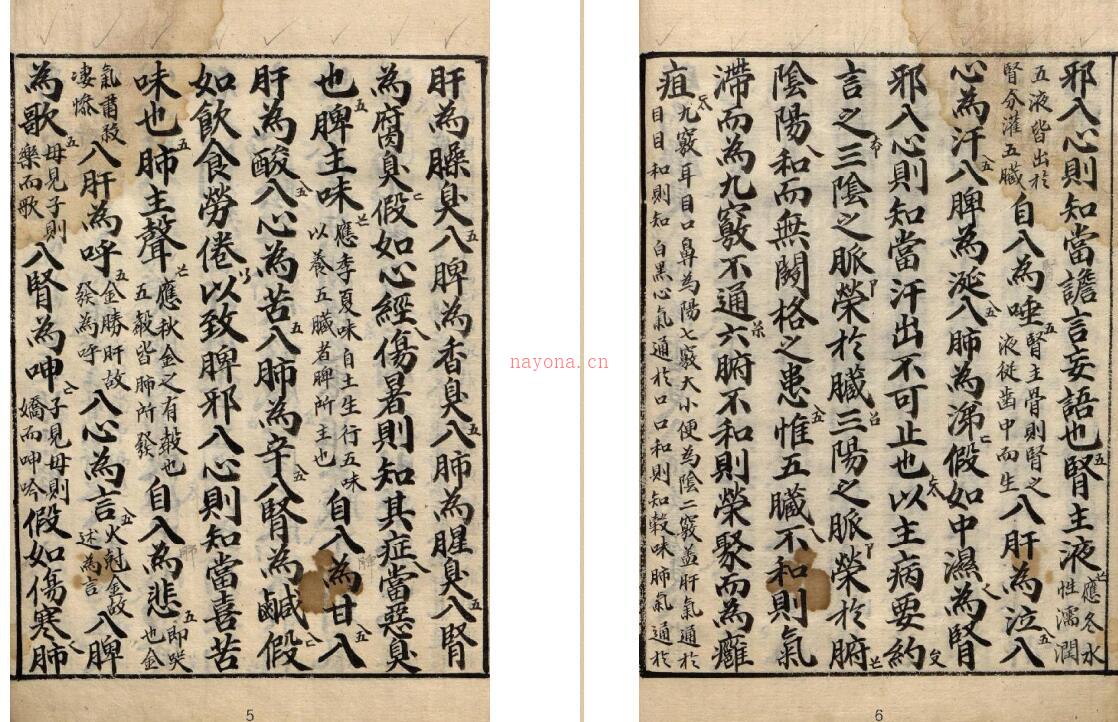 肝為臊臭入脾為香臭入肺為腥臭入腎
為腐臭假如心經傷暑則知其症當惡臭
也脾主味應季夏味自土生行五味以養五臟者脾所主也自入為甘入
肝為酸入心為苦入肺為辛入腎為鹹假
如飲食勞倦以致脾邪入心則知當喜苦
味也肺主聲應秋金之有穀也五穀皆肺所發自入為悲即哭也金
氣肅殺凄慘入肝為呼金勝肝故發為呼入心為言火尅金故述為言入脾
為歌母見子則樂而歌入腎為呻子見母則嬌而呻吟假如傷寒肺
5
nayona.cn
邪入心則知當譫言妄語也腎主液應冬水性濡潤
五液皆出於腎分灌五臟自入為唾腎主骨則腎之液從齒中而生入肝為泣入
心為汗入脾為涎入肺為涕假如中濕為腎
邪入心則知當汗出不可止也以主病要約
言之三陰之脈榮於臟三陽之脈榮於腑
陰陽和而無關格之患惟五臟不和則氣
滯而為九竅不通六腑不和則榮聚而為癰
疽九竅耳目口鼻為陽七竅大小便為陰二竅蓋肝氣通於目目和則知白黑心氣通於口口和則知穀味肺氣通於
6